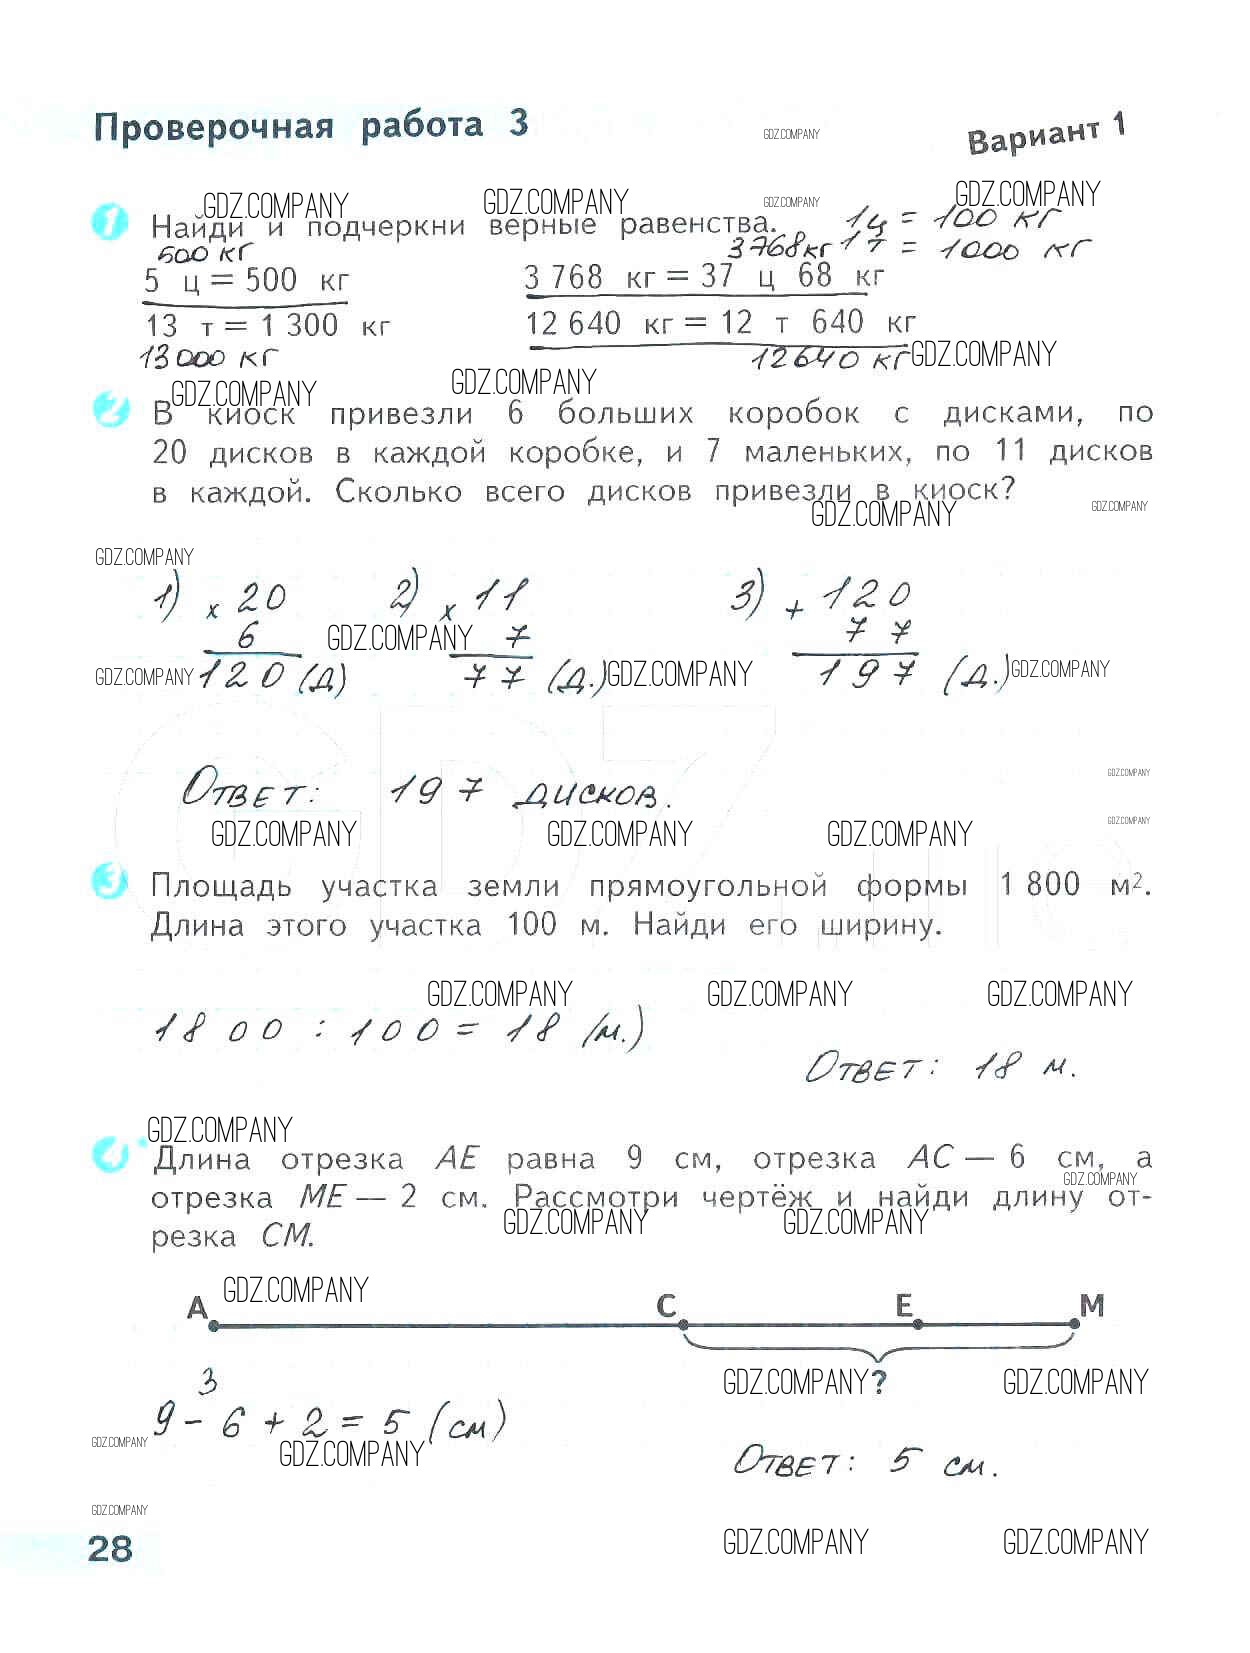 Проверочная работа 3
GDZ.COMPANY
Вариант 1
GDZ.COMPANY GDZ.COMPANY GDZ.COMPANY GDZ.COMPANY
1 Найди и подчеркни верные равенства. 1ц = 100 кг
500 кг 3768кг 1т = 1000 кг
5 ц = 500 кг 3 768 кг = 37 ц 68 кг
13 т = 1 300 кг 12 640 кг = 12 т 640 кг
13000 кг 12640 кг GDZ.COMPANY
GDZ.COMPANY GDZ.COMPANY
2 В киоск привезли 6 больших коробок с дисками, по
20 дисков в каждой коробке, и 7 маленьких, по 11 дисков
в каждой. Сколько всего дисков привезли в киоск?
GDZ.COMPANY GDZ.COMPANY
GDZ.COMPANY
1) x 20 2) x 11 3) + 120
6 GDZ.COMPANY 7 77
GDZ.COMPANY 120 (д) 77 (д.) GDZ.COMPANY 197 (д.) GDZ.COMPANY
GDZ.COMPANY
Ответ: 197 дисков.
GDZ.COMPANY GDZ.COMPANY GDZ.COMPANY GDZ.COMPANY
3 Площадь участка земли прямоугольной формы 1 800 м².
Длина этого участка 100 м. Найди его ширину.
GDZ.COMPANY GDZ.COMPANY GDZ.COMPANY
1800 : 100 = 18 (м.)
Ответ: 18 м.
GDZ.COMPANY
4 Длина отрезка AE равна 9 см, отрезка AC — 6 см, а
GDZ.COMPANY
отрезка ME — 2 см. Рассмотри чертёж и найди длину от-
GDZ.COMPANY GDZ.COMPANY
резка CM.
GDZ.COMPANY
A C E M
GDZ.COMPANY ? GDZ.COMPANY
3
9 - 6 + 2 = 5 (см)
GDZ.COMPANY GDZ.COMPANY
Ответ: 5 см.
GDZ.COMPANY
28 GDZ.COMPANY GDZ.COMPANY